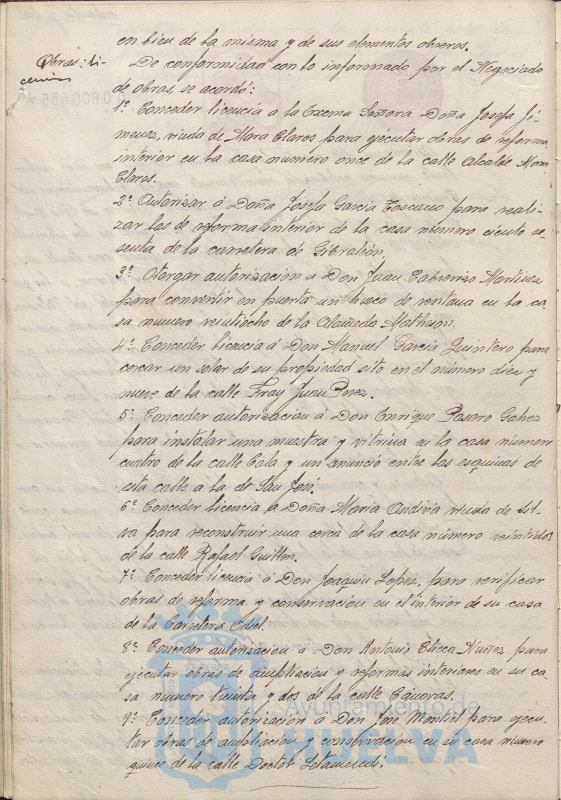 en bien de la misma y de sus elementos obreros.
Obras: li-
cencias
De conformidad con lo informado por el Negociado
de obras, se acordó:
1º. Conceder licencia a la Excma Señora Doña Josefa Ji-
menez, viuda de Mora Claros para ejecutar obras de reforma
interior en la casa numero once de la calle Alcalde Mora
Claros.
2º. Autorizar á Doña Josefa Garcia Toscano para reali-
zar las de reforma interior de la casa número ciento se-
senta de la carretera de Gibraleón.
3º. Otorgar autorización a Don Juan Martinez
para convertir en puerta un hueco de ventana en la ca-
sa numero veintiocho de la Alameda Matheson.
4º. Conceder licencia á Don Manuel Garcia Quintero para
cercar un solar de su propiedad sito en el número diez y
nueve de la calle Fray Juan Perez.
5º. Conceder autorización á Don Enrique Galvez
para instalar una muestra y vitrina en la casa numero
cuatro de la calle Cala y un anuncio entre las esquinas de
esta calle a la de San José.
6º. Conceder licencia a Doña Maria Andivia viuda de Sil-
va para reconstruir una cerca de la casa número veintidos
de la calle Rafael Guillen.
7º. Conceder licencia á Don Joaquin Lopez, para verificar
obras de reforma y conservación en el interior de su casa
de la Carretera Odiel.
8º. Conceder autorización á Don Antonio Checa Nuñez para
ejecutar obras de ampliación y reformas interiores en su ca-
sa numero treinta y dos de la calle Canovas.
9º. Conceder autorización á Don José Montiel para ejecu-
tar obras de ampliación y conservación en su casa numero
quince de la calle Doctor Letamendi.
Ayuntamiento de
HUELVA